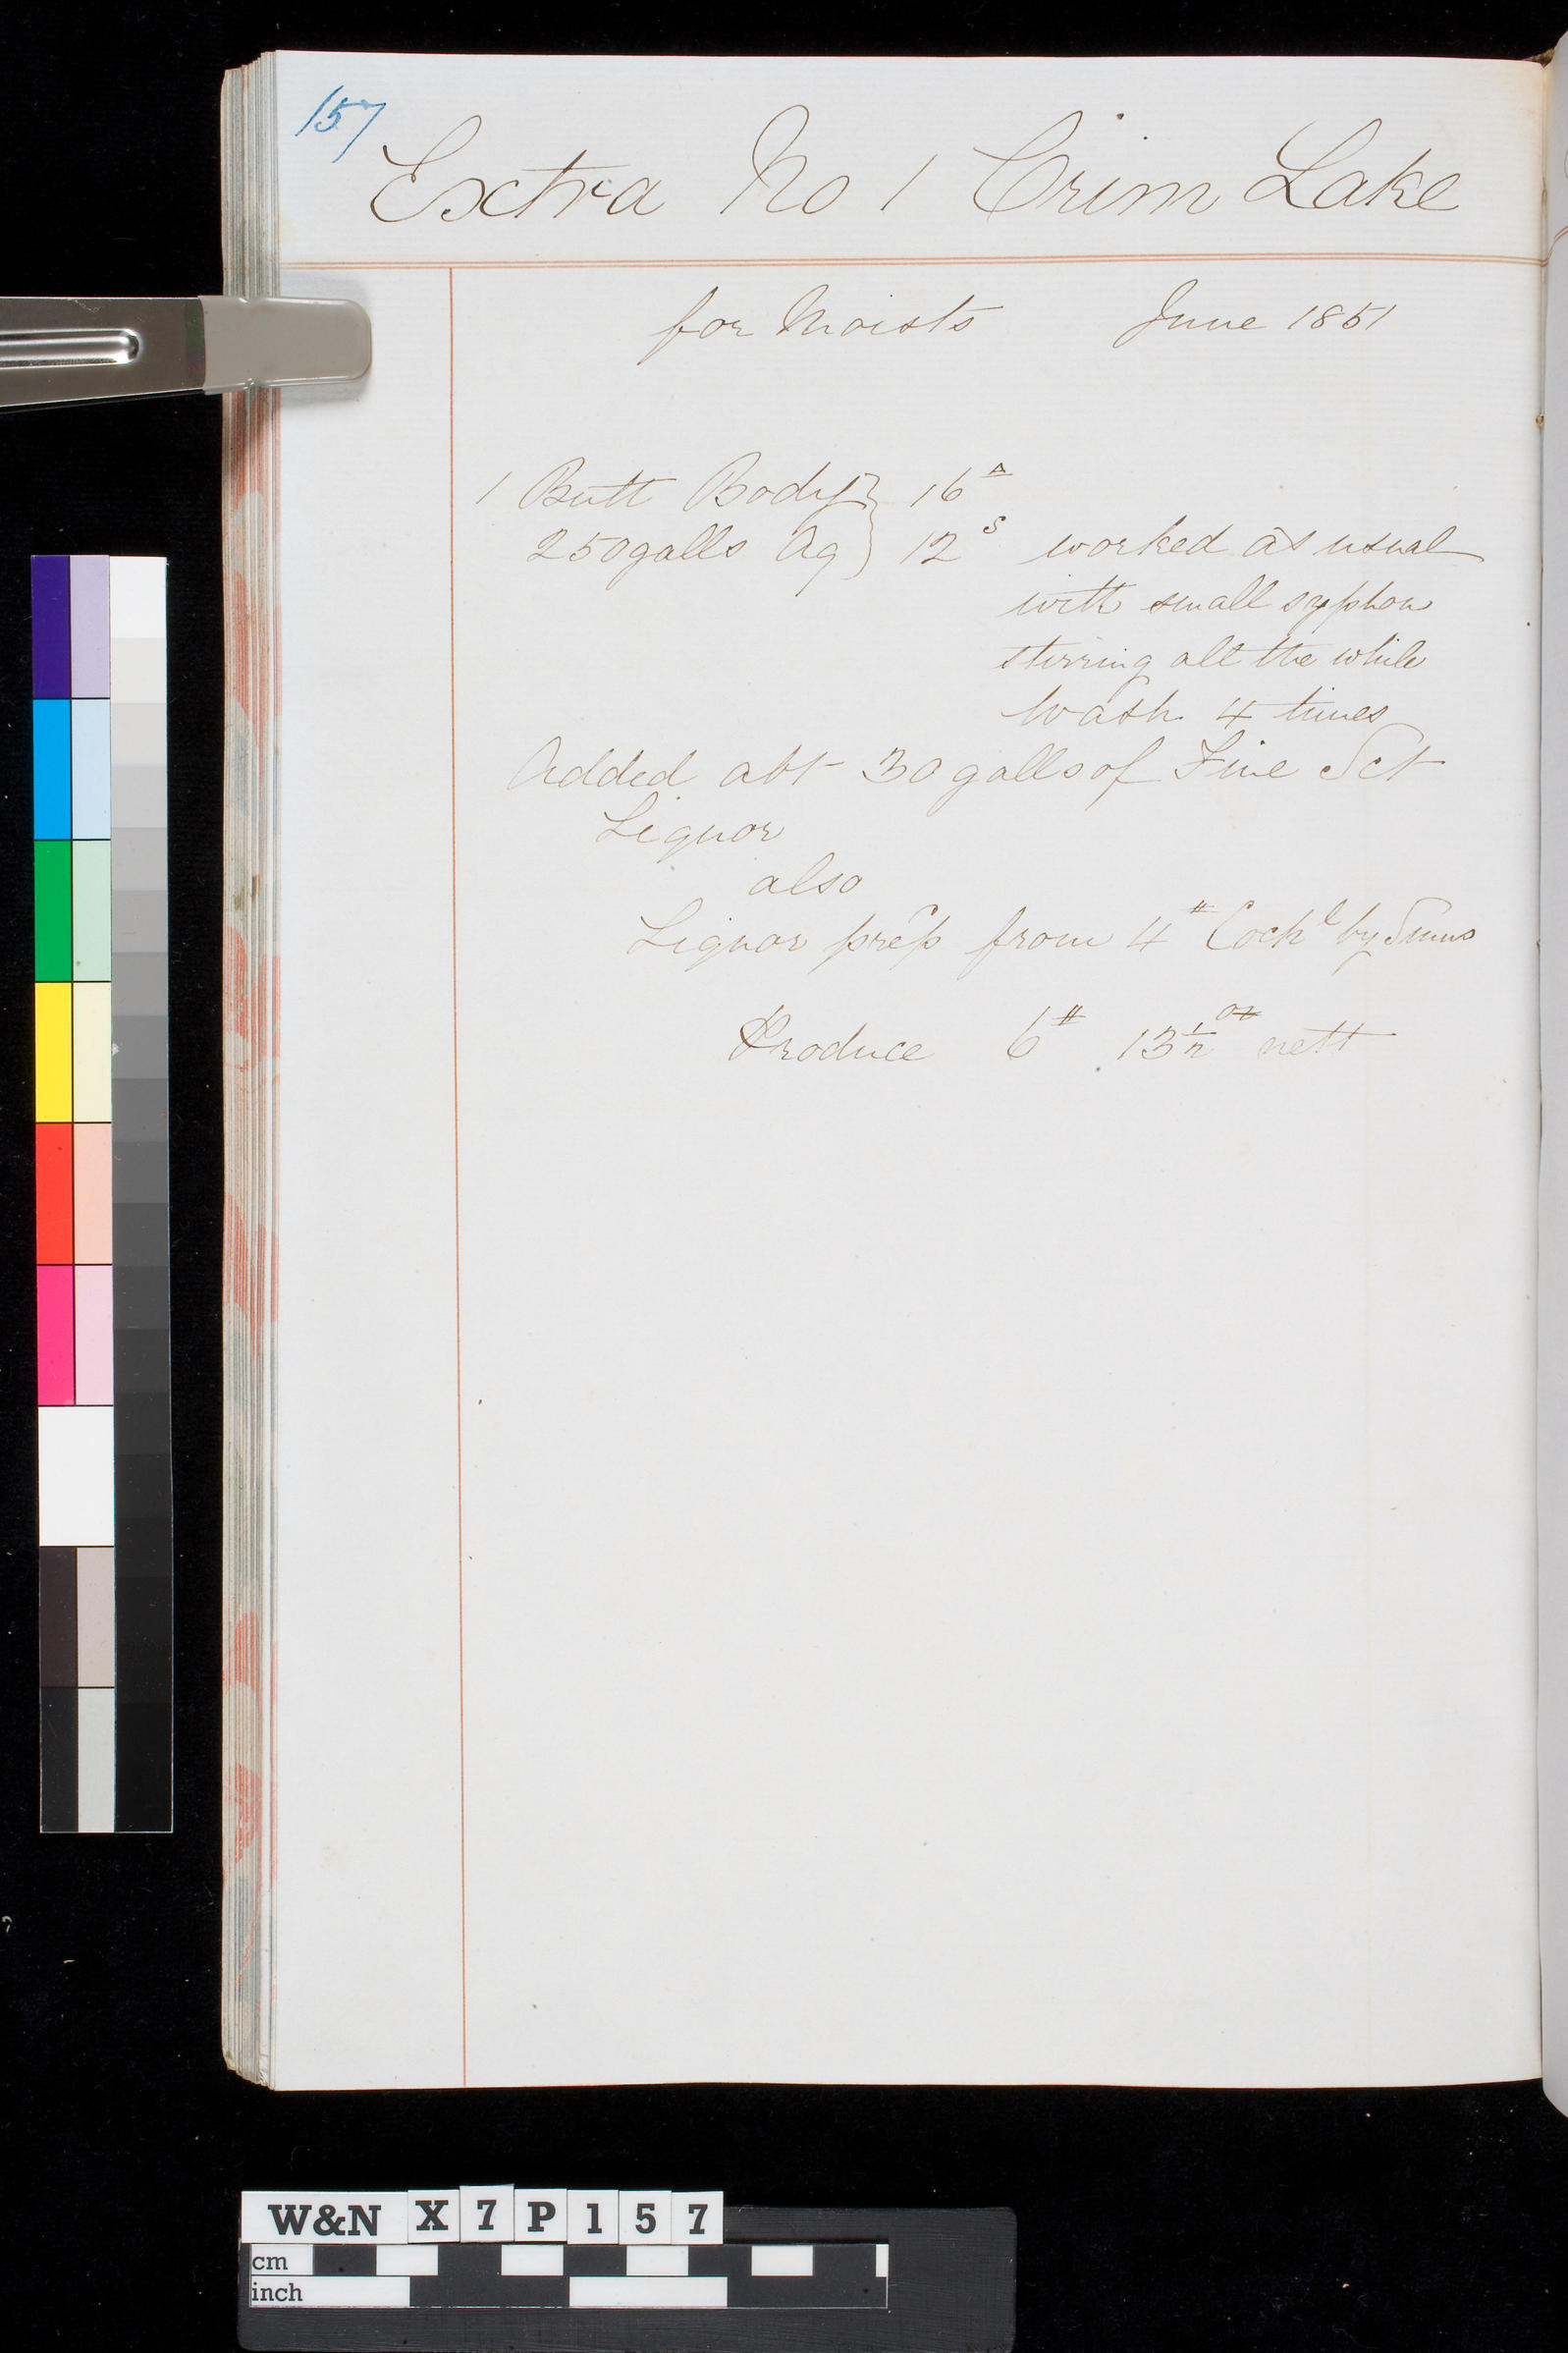 157
Extra No 1 Crim Lake
for Moists June 1851
1 Butt Body } 16 A
250 galls Aq } 12 S worked as usual
with small syphon
stirring all the while
Wash 4 times
Added abt 30 galls of Fine Sct
Liquor
also
Liquor prep from 4 # Coch l by
Produce 6 # 13 1/2 oz nett
W&N X 7 P 1 5 7
cm
inch